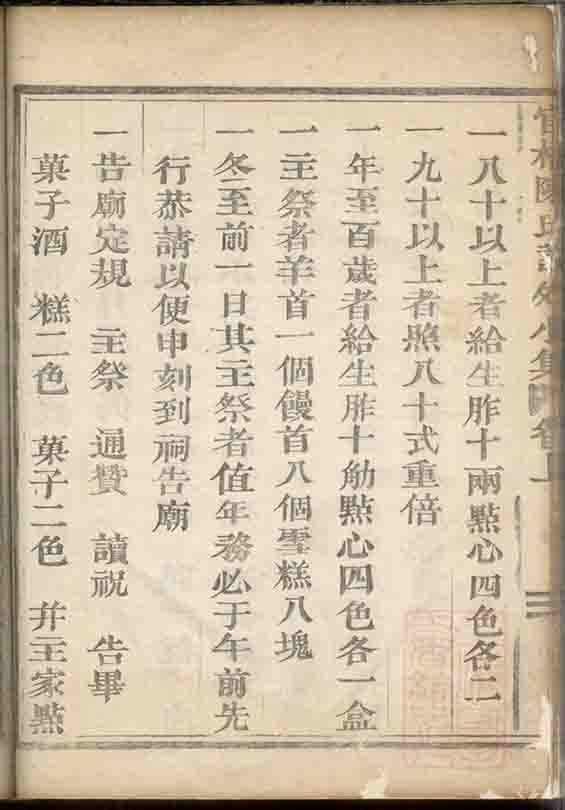 陳氏譜外小集 卷上
一八十以上者給生胙十兩點心四色各二
一九十以上者照八十式重倍
一年至百歲者給生胙十觔點心四色各一盒
一主祭者羊首一個饅首八個雪糕八塊
一冬至前一日其主祭者值年務必于午前先
行恭請以便申刻到祠告廟
一告廟定規 主祭 通贊 讀祝 告畢
菓子酒 糕二色 菓子二色 幷主家點